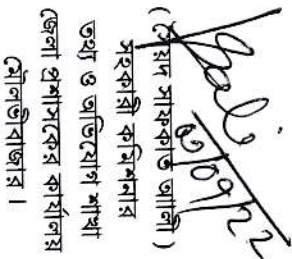 (সৈয়দ সাফকাত আলী)
সহকারী কমিশনার
তথ্য ও অভিযোগ শাখা
জেলা প্রশাসকের কার্যালয়
মৌলভীবাজার।